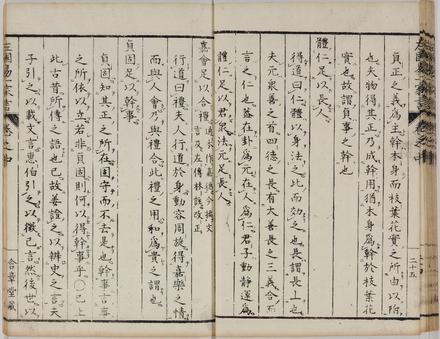 貞正之義爲主幹本身而枝葉花實之所由以防
也夫物得其正乃成幹用猶本身爲幹於枝葉花
實也故謂貞事之幹也
體仁足以長人
得道曰仁體以身法之此而効之也長謂長上也
夫元衆善之首四德之長有大善長之三義合而
言之仁也葢在卦爲元在人爲仁君子動靜運爲
體仁足以君衆法元足長人
嘉會足以合禮
行道曰禮夫人行道於身動容周旋得嘉樂之情
而與人會乃與禮合此禮之用和爲貴之謂也
貞固足以幹事
貞固知其正之所在固守而不去是也幹事言事
之所依以立若非貞固則何以得幹事乎○已上
此古昔所傳之語也已故善證之以辨史之言夫
子引之以載文言惠伯引之以徵已言然後世以
左國易家言 卷之中
合章堂藏
二十五